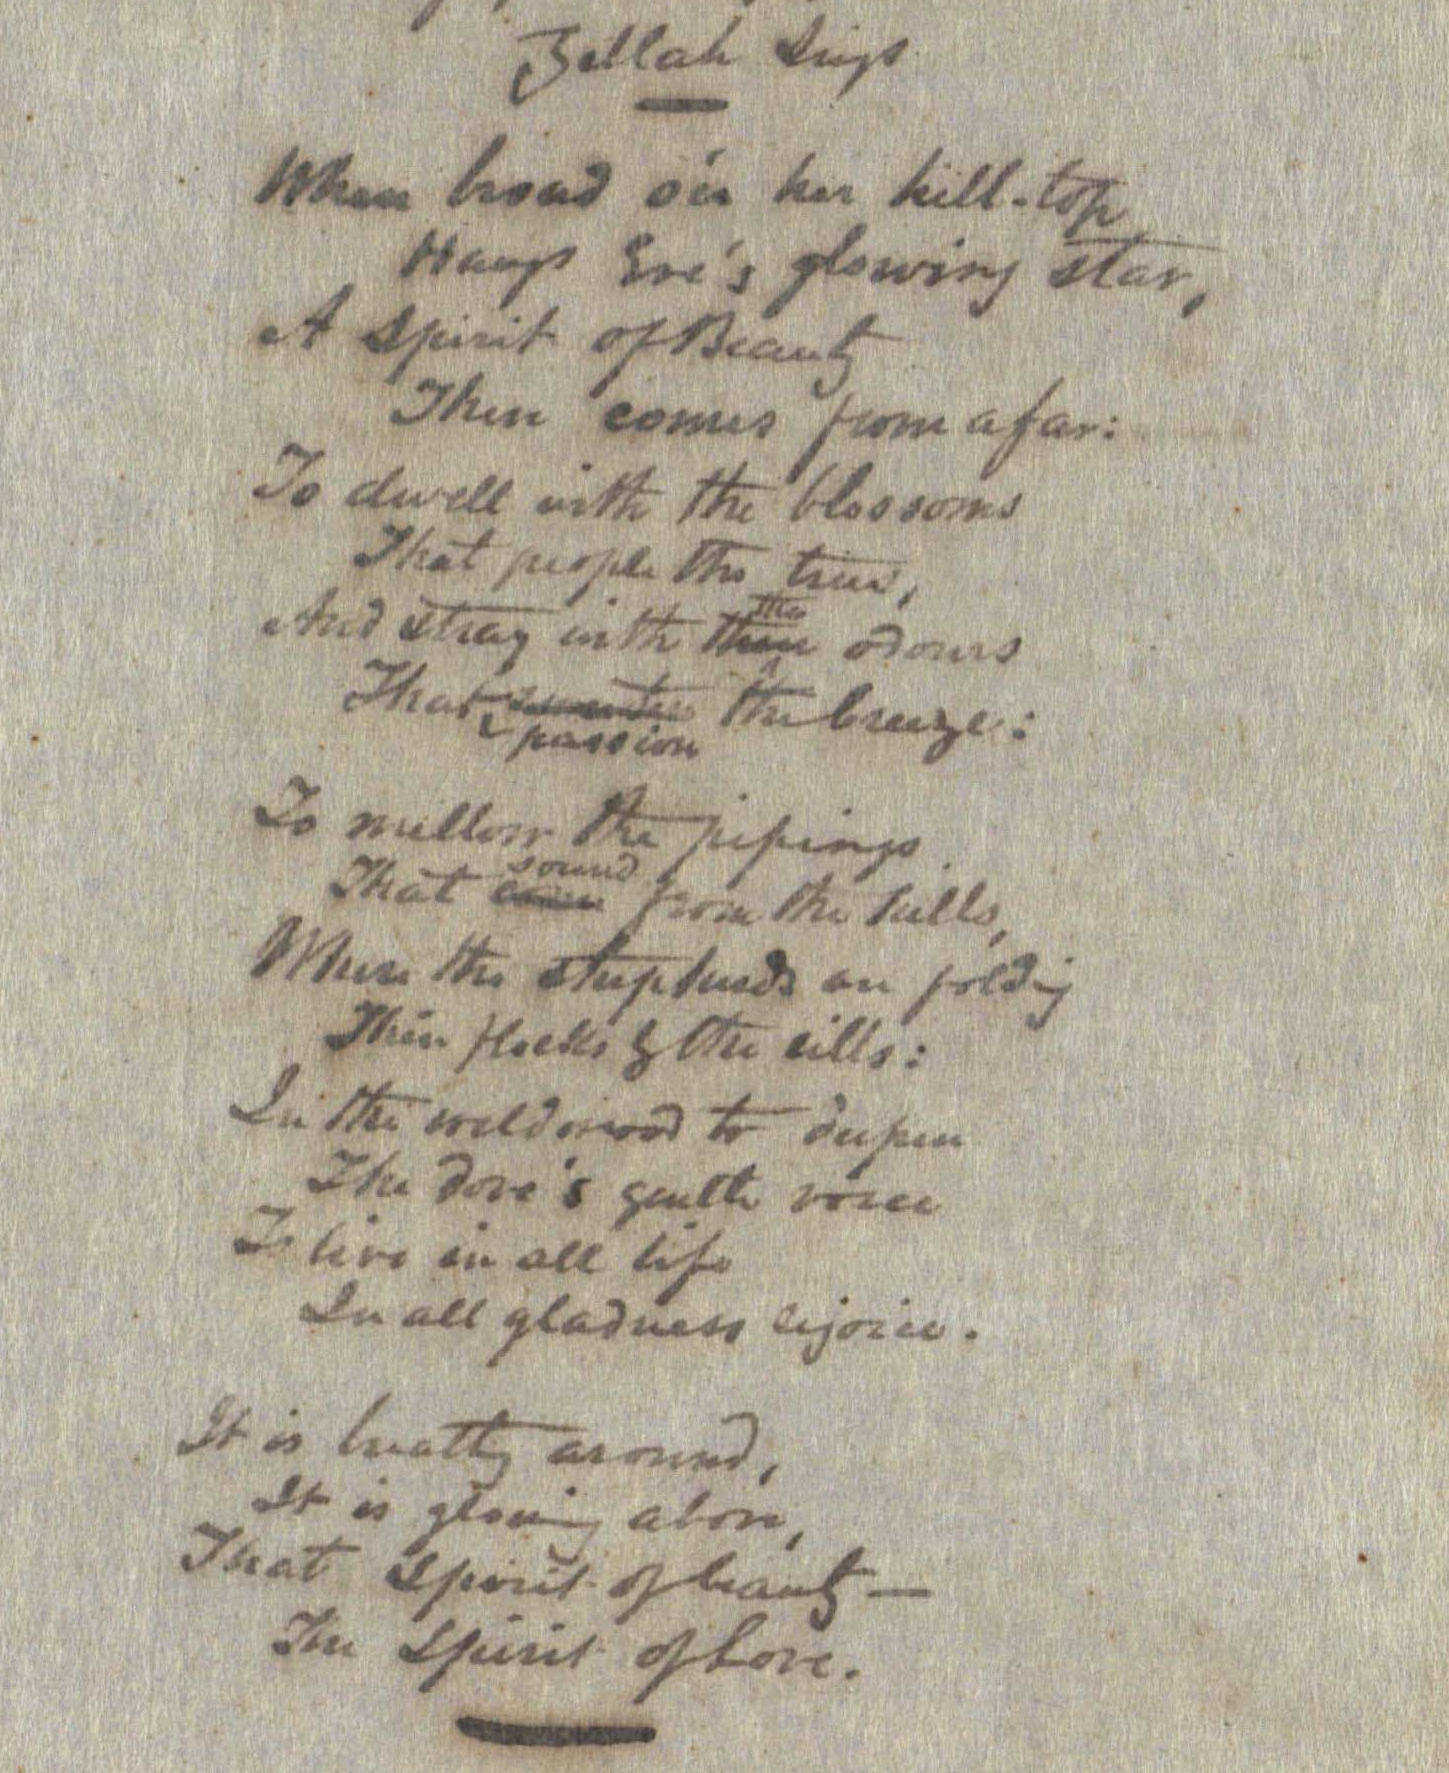 Zillah Sings
When broad o'er her hill-top
Hangs Eve's glowing star,
A Spirit of Beauty
There comes from afar:
To dwell with the blossoms
That people the trees,
the
And stray with odours
That the breeze:
passion
To mellow the pipings
sound
That come from the hills,
Where the shepherds are folding
Their flocks by the rills:
In the wildwood to deepen
The dove's gentle voice
To live in all life
In all gladness rejoice.
It is breathing around,
It is glowing above,
That Spirit of beauty—
The Spirit of Love.